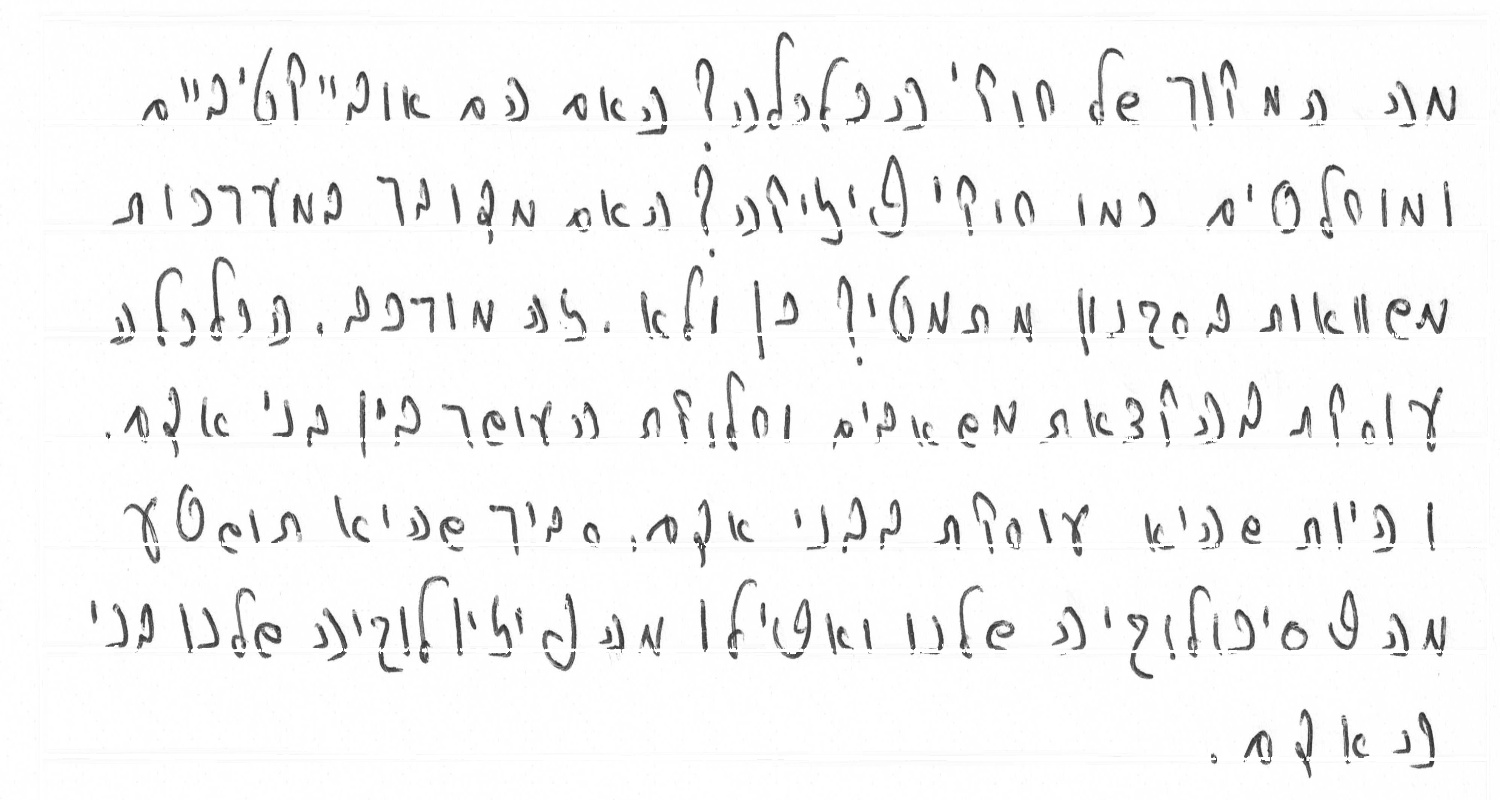 מה המקור של חוקי הכלכלה? האם הם אובייקטיביים
ומוחלטים כמו חוקי פיזיקה? האם מדובר במערכות
משוואות בסגנון מתמטי? כן ולא. זה מורכב. הכלכלה
עוסקת בהקצאת משאבים וחלוקת העושר בין בני אדם.
והיות שהיא עוסקת בבני אדם. סביר שהיא תושפע
מהפסיכולוגיה שלנו ואפילו מהפיזיולוגיה שלנו בני
האדם.